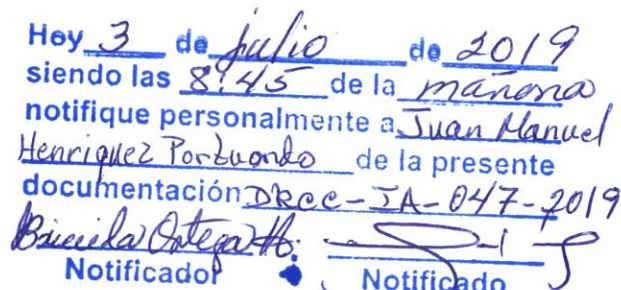 Hoy 3 de julio de 2019
siendo las 8:45 de la mañana
notifique personalmente a Juan Manuel
Henriquez Portuondo de la presente
documentación DRCC-IA-047-2019
Notificador Notificado